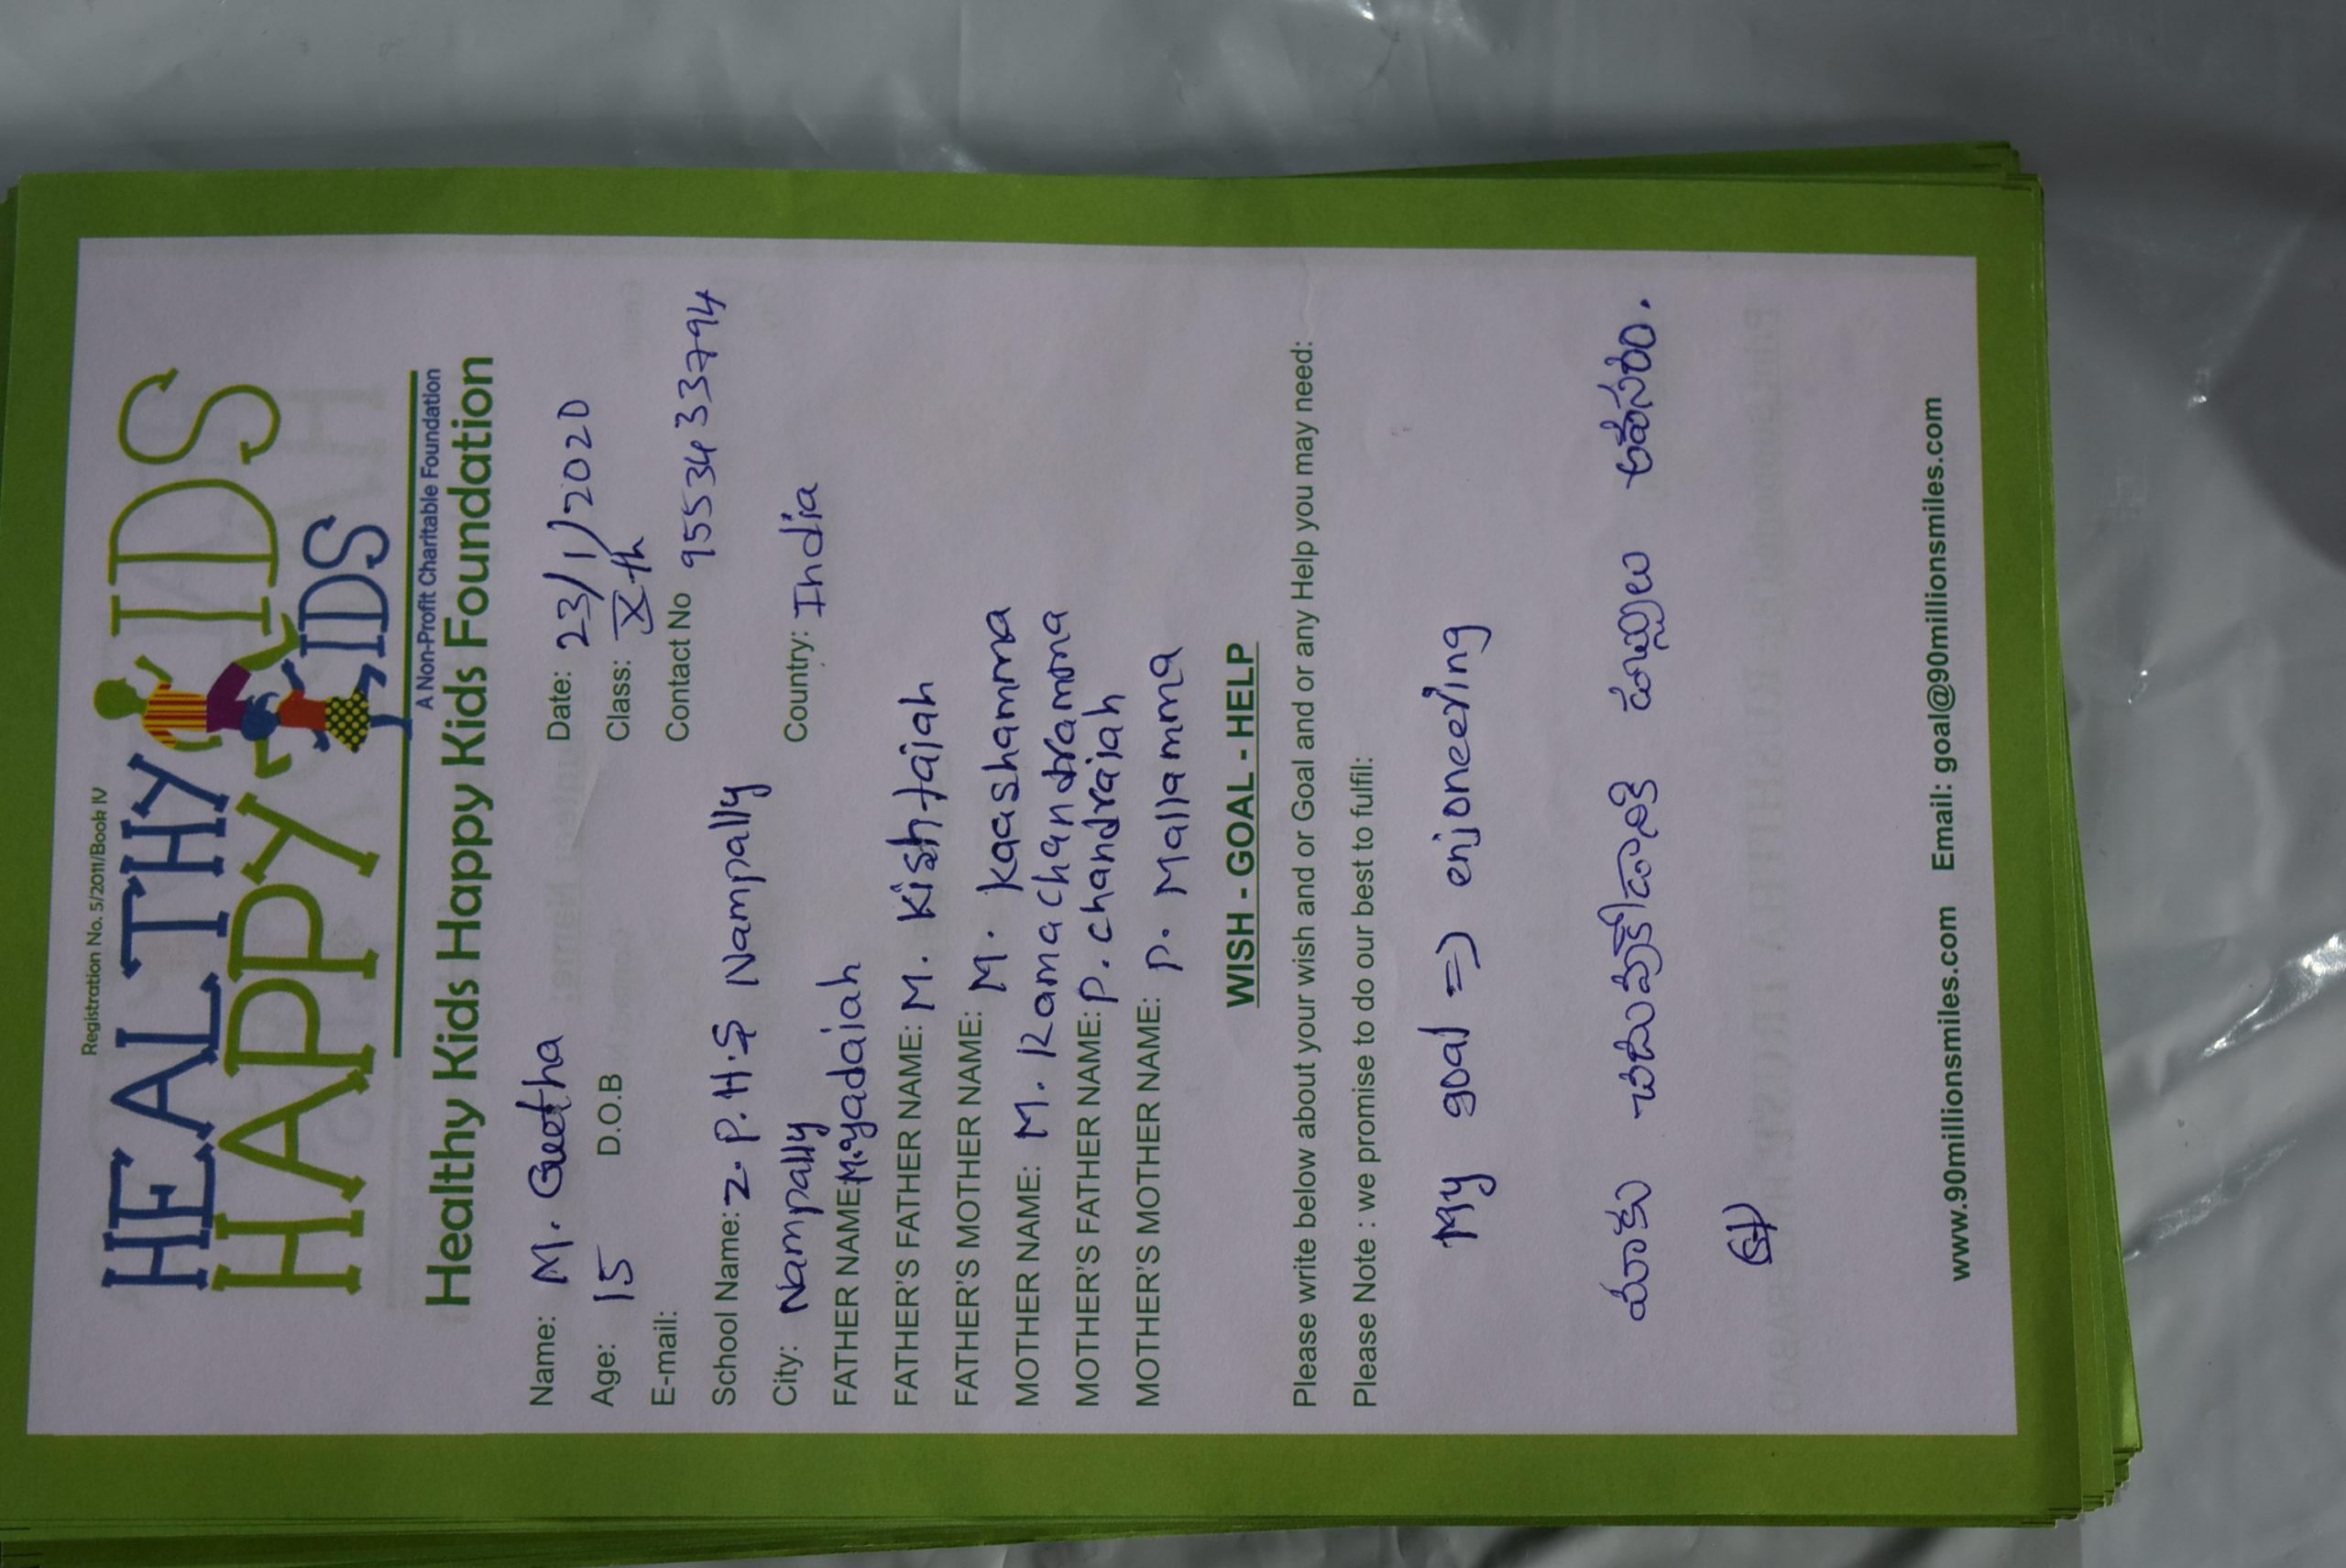 Registration No. 5/2011/Book IV
HEALTHY KIDS
HAPPY KIDS
A Non-Profit Charitable Foundation
Healthy Kids Happy Kids Foundation
Name: M. Geetha Date: 23/1/2020
Age: 15 D.O.B Class: Xth
E-mail: Contact No 9553433794
School Name: Z.P.H.S Nampally
City: Nampally Country: India
FATHER NAME: M.yadaiah
FATHER'S FATHER NAME: M. Kishtaiah
FATHER'S MOTHER NAME: M. Kaashamma
MOTHER NAME: M. Ramachandramma
MOTHER'S FATHER NAME: P. chandraiah
MOTHER'S MOTHER NAME: P. Mallamma
WISH - GOAL - HELP
Please write below about your wish and or Goal and or any Help you may need:
Please Note : we promise to do our best to fulfil:
My goal => enjoneering
మాకు చదువుకోడానికి డబ్బులు అవసరం.
www.90millionsmiles.com Email: goal@90millionsmiles.com